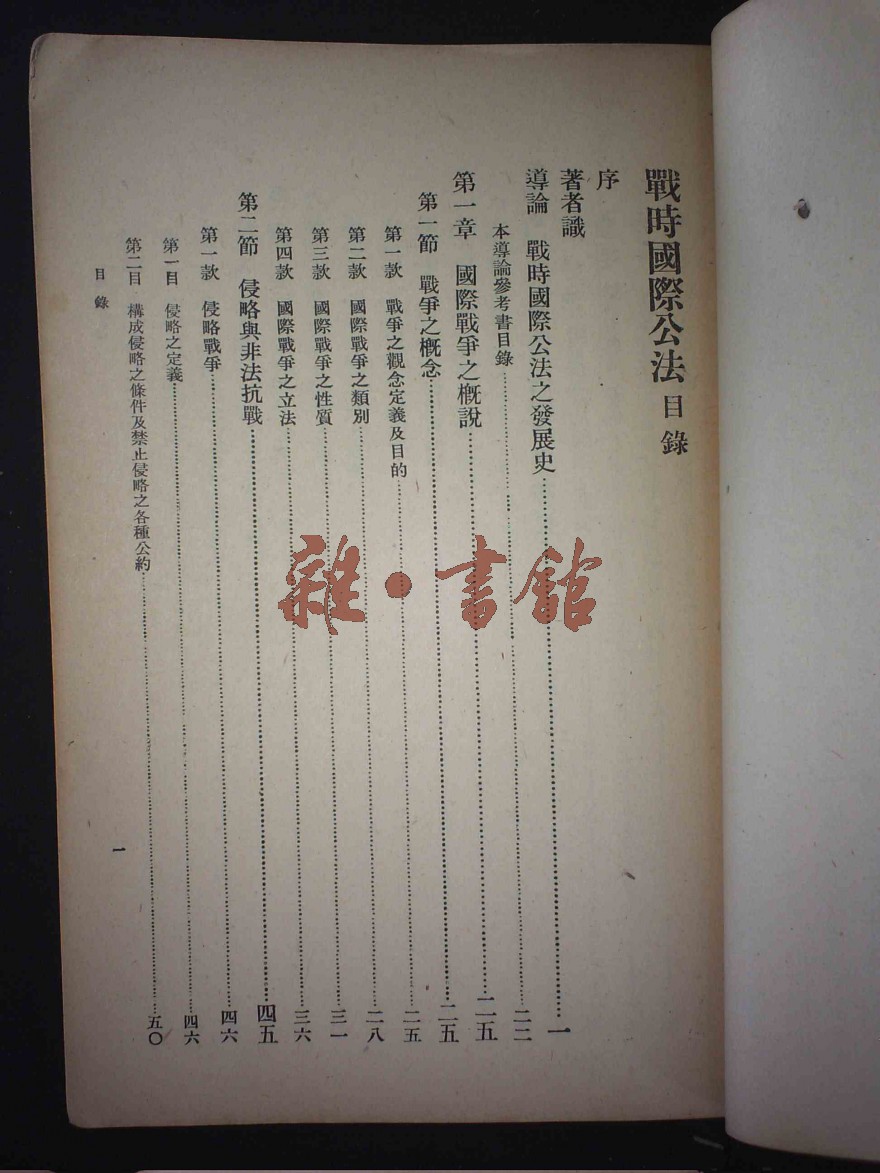 戰時國際公法目錄
序
著者識
導論 戰時國際公法之發展史……一
本導論參考書目錄……二二
第一章 國際戰爭之槪說……二五
第一節 戰爭之槪念……二五
第一款 戰爭之觀念定義及目的……二五
第二款 國際戰爭之類別……二八
第三款 國際戰爭之性質……三一
第四款 國際戰爭之立法……三六
第二節 侵略與非法抗戰……四五
第一款 侵略戰爭……四六
第一目 侵略之定義……四六
第二目 構成侵略之條件及禁止侵略之各種公約……五〇
目錄
一
雜·書館